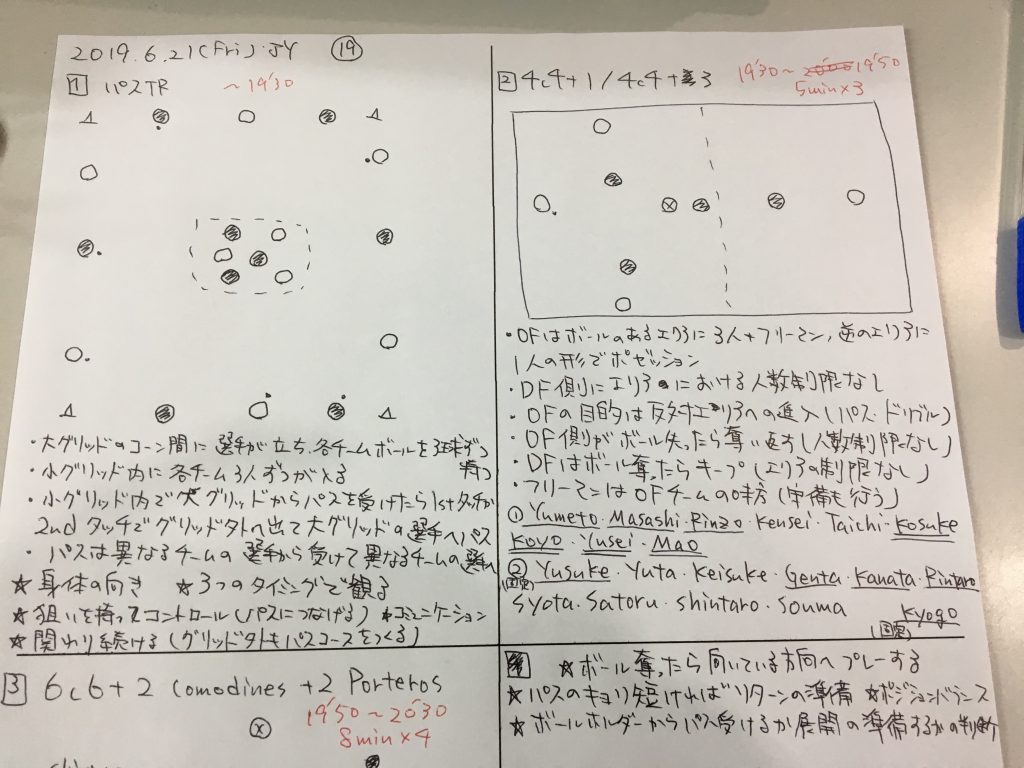 2019.6.21(Fri)・JY ⑲
1 パスTR ～19'30
・大グリッドのコーン間に選手が立ち、各チームボールを3球ずつ
持つ
・小グリッド内に各チーム3人ずつが入る
・小グリッド内で大グリッドからパスを受けたら1stタッチか
2ndタッチでグリッド外へ出て大グリッドの選手へパス
・パスは異なるチームの選手から受けて異なるチームの選手へ
★身体の向き ★3つのタイミングで観る
★狙いを持ってコントロール(パスにつなげる) ★コミュニケーション
★関わり続ける(グリッド外もパスコースをつくる)
2 4c4+1/4c4+3 19'30～20'00 19'50
5min×3
・OFはボールのあるエリアに3人+フリーマン,逆のエリアに
1人の形でポゼッション
・DF側にエリアにおける人数制限なし
・OFの目的は反対エリアへの進入(パス・ドリブル)
・OF側がボール失ったら奪い返す(人数制限なし)
・DFはボール奪ったらキープ(エリアの制限なし)
・フリーマンはOFチームの味方(守備も行う)
① Yumeto・Masashi・Rinzo・Kensei・Taichi・Kosuke
Koyo・Yusei・Mao
② Yusuke・Yuta・Keisuke・Genta・Kanata・Rintaro
(固定)
Syota・Satoru・Shintaro・Souma
Kyogo
(固定)
3 6c6+2 Comodines +2 Porteros
19'50～20'30
8min×4
★ボール奪ったら向いている方向へプレーする
★パスのキョリ短ければリターンの準備 ★ポジションバランス
★ボールホルダーからパス受けるか展開の準備するかの判断